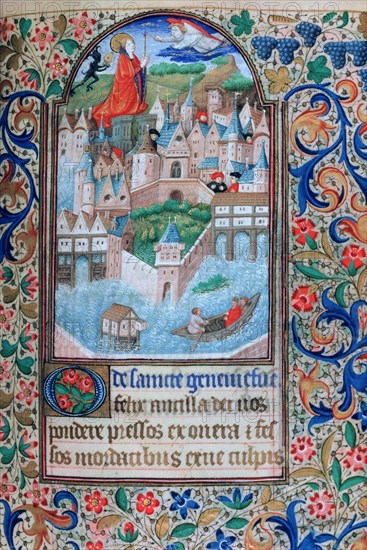 De saincte geneviefve
O felix ancilla dei nos
pondere pressos exonera i fes
sos mordacibus exue culpis